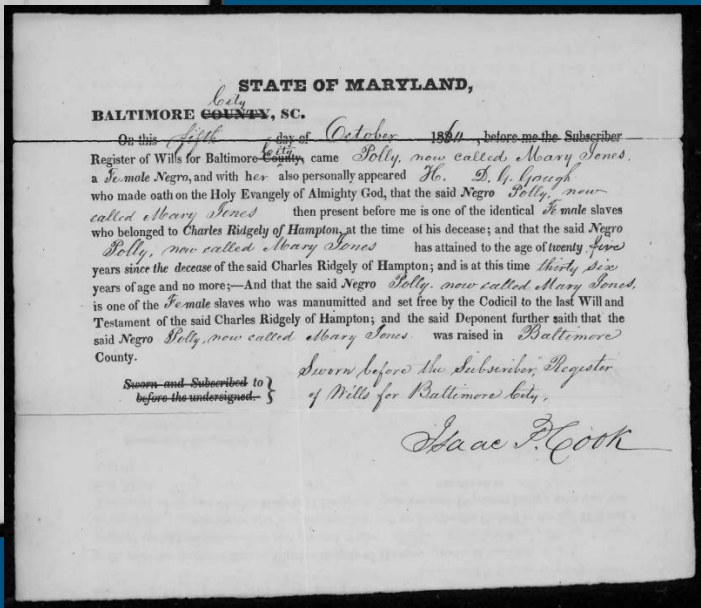 STATE OF MARYLAND,
City
BALTIMORE COUNTY, SC.
On this fifth day of October 18 , before me the Subscriber
City
Register of Wills for Baltimore County, came Polly, now called Mary Jones.
a Female Negro, and with her also personally appeared H. D. G. Gough
who made oath on the Holy Evangely of Almighty God, that the said Negro Polly, now
called Mary Jones then present before me is one of the identical Female slaves
who belonged to Charles Ridgely of Hampton, at the time of his decease; and that the said Negro
Polly, now called Mary Jones has attained to the age of twenty five
years since the decease of the said Charles Ridgely of Hampton; and is at this time thirty six
years of age and no more;—And that the said Negro Polly. now called Mary Jones.
is one of the Female slaves who was manumitted and set free by the Codicil to the last Will and
Testament of the said Charles Ridgely of Hampton; and the said Deponent further saith that the
said Negro Polly, now called Mary Jones. was raised in Baltimore
County.
Sworn and Subscribed to
before the undersigned.
Sworn before the Subscriber, Register
of Wills for Baltimore City,
Isaac P. Cook